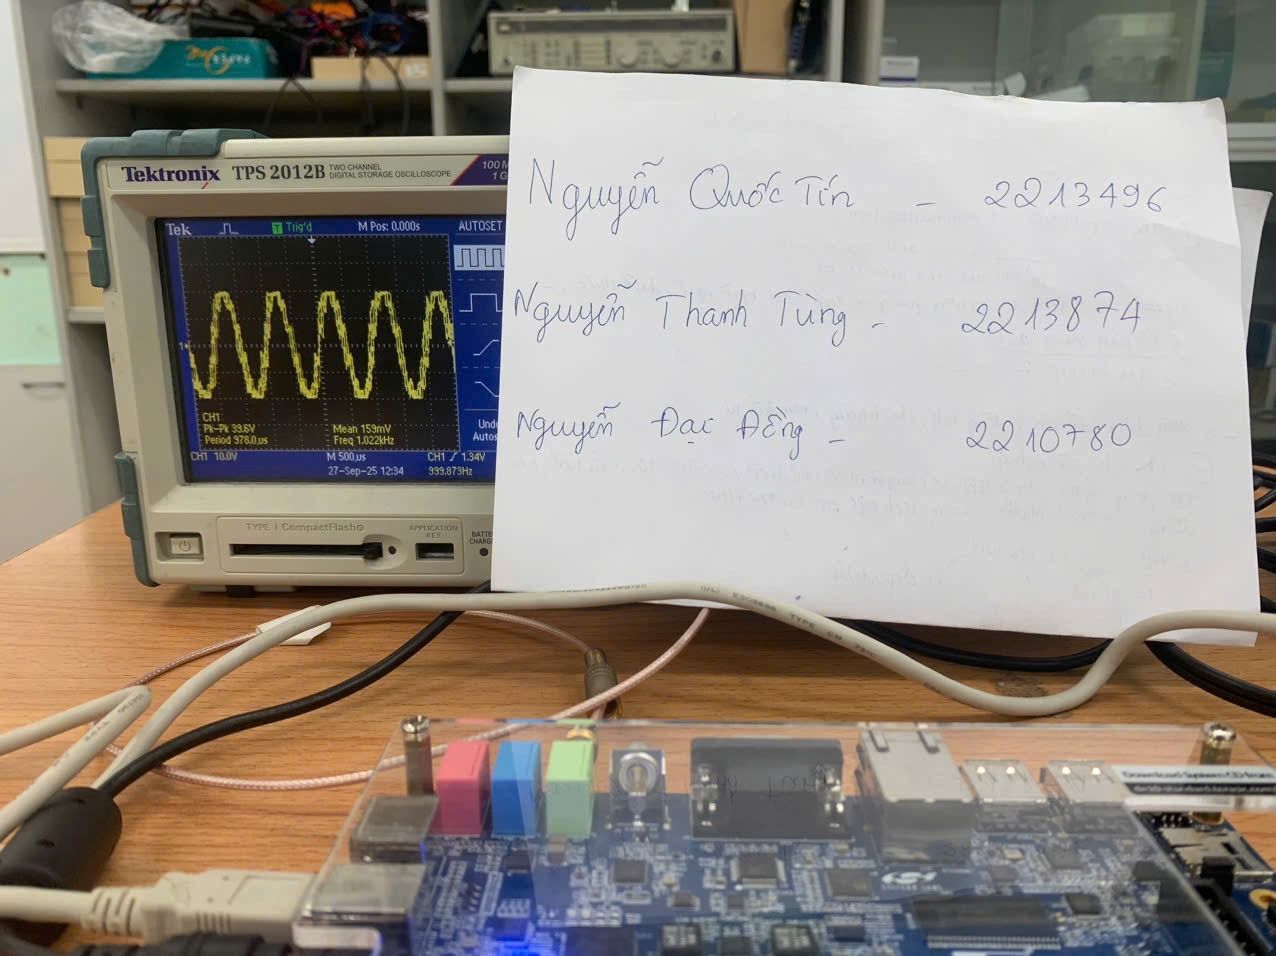 Tektronix TPS 2012B TWO CHANNEL DIGITAL STORAGE OSCILLOSCOPE
100 M
1 G
Tek T Trig'd M Pos: 0.000s AUTOSET
1+
CH1
Pk-Pk 39.6V Mean 159mV
Period 978.0µs Freq 1.022kHz
Undo
Autos
CH1 10.0V M 500µs CH1 / 1.34V
27-Sep-25 12:34 999.873Hz
TYPE I CompactFlash®
APPLICATION KEY
BATT
CHARG
Nguyễn Quốc Tín - 2213496
Nguyễn Thanh Tùng - 2213874
Nguyễn Đạc Đồng - 2210780
E308666 TYPE CM